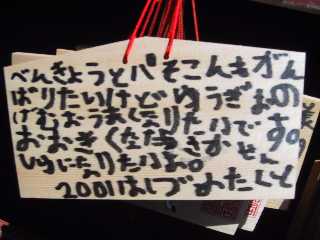 べんきょうとパそこんもがん
ばりたいけどゆうぎおの
げむおうまくなりたいでさ
おおきくなたらさかせんす
しゅになりたいな。
2001 はしづめたいと